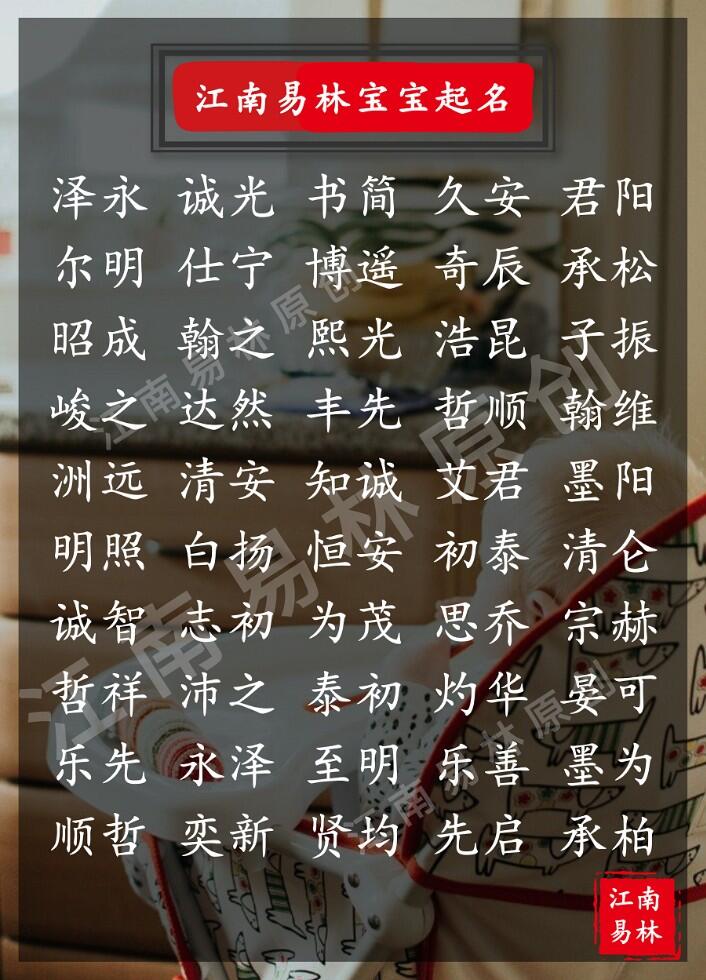 江南易林宝宝起名
泽永 诚光 书简 久安 君阳
尔明 仕宁 博遥 奇辰 承松
昭成 翰之 熙光 浩昆 子振
峻之 达然 丰先 哲顺 翰维
洲远 清安 知诚 艾君 墨阳
明照 白扬 恒安 初泰 清仑
诚智 志初 为茂 思乔 宗赫
哲祥 沛之 泰初 灼华 晏可
乐先 永泽 至明 乐善 墨为
顺哲 奕新 贤均 先启 承柏
江南
易林
江南易林原创
江南易林原创
江南易林原创